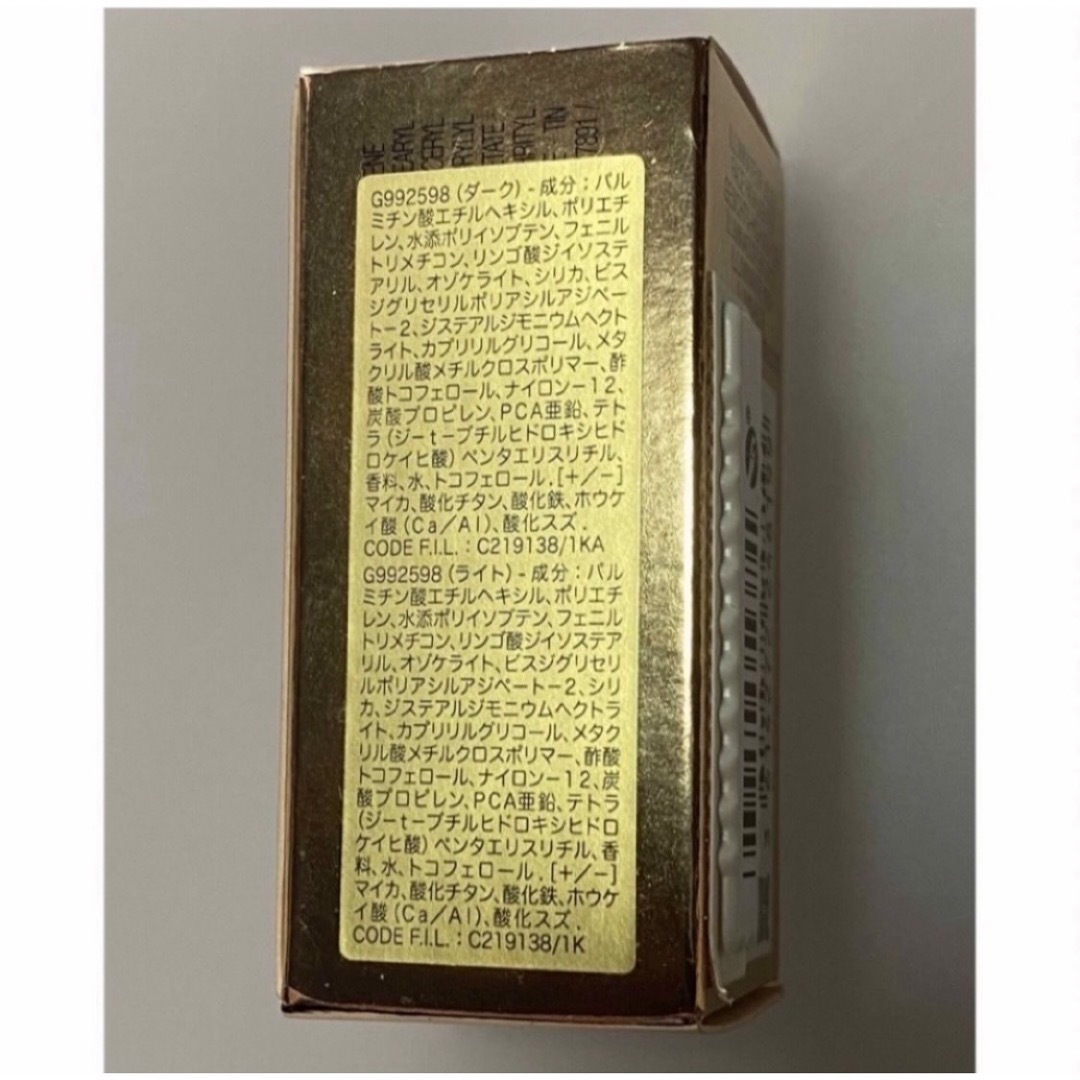 ENE
EARYL
CERYL
RYLYL
TATE
RITYL
TIN
7891/
G992598 (ダーク) - 成分：パル
ミチン酸エチルヘキシル、ポリエチ
レン、水添ポリイソブテン、フェニル
トリメチコン、リンゴ酸ジイソステ
アリル、オゾケライト、シリカ、ビス
ジグリセリルポリアシルアジペー
ト－2、ジステアルジモニウムヘクト
ライト、カプリリルグリコール、メタ
クリル酸メチルクロスポリマー、酢
酸トコフェロール、ナイロン－12、
炭酸プロピレン、PCA亜鉛、テト
ラ(ジーt－ブチルヒドロキシヒド
ロケイヒ酸) ペンタエリスリチル、
香料、水、トコフェロール.[+／－]
マイカ、酸化チタン、酸化鉄、ホウケ
イ酸 (Ca／Al)、酸化スズ.
CODE F.I.L. : C219138/1KA
G992598 (ライト) - 成分：パル
ミチン酸エチルヘキシル、ポリエチ
レン、水添ポリイソブテン、フェニル
トリメチコン、リンゴ酸ジイソステア
リル、オゾケライト、ビスジグリセリ
ルポリアシルアジペート－2、シリ
カ、ジステアルジモニウムヘクトラ
イト、カプリリルグリコール、メタク
リル酸メチルクロスポリマー、酢酸
トコフェロール、ナイロン－12、炭
酸プロピレン、PCA亜鉛、テトラ
(ジーt－ブチルヒドロキシヒドロ
ケイヒ酸) ペンタエリスリチル、香
料、水、トコフェロール.[+／－]
マイカ、酸化チタン、酸化鉄、ホウケ
イ酸 (Ca／Al)、酸化スズ.
CODE F.I.L. : C219138/1K